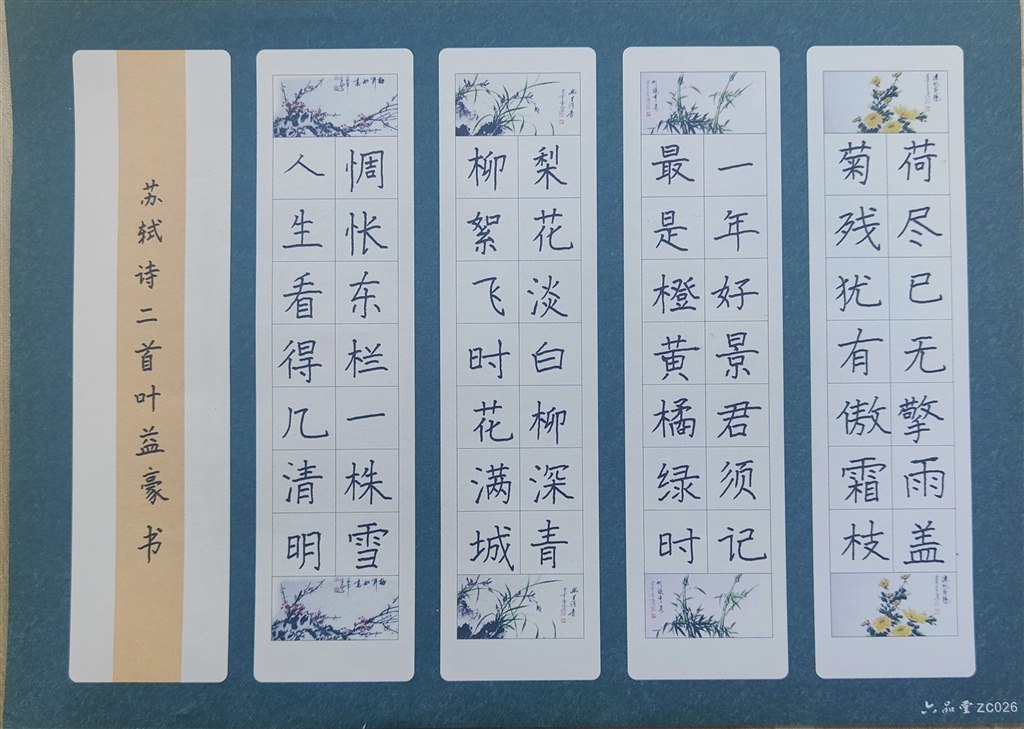 荷尽已无擎雨盖
菊残犹有傲霜枝
一年好景君须记
最是橙黄橘绿时
梨花淡白柳深青
柳絮飞时花满城
惆怅东栏一株雪
人生看得几清明
苏轼诗二首叶益豪书
六品堂ZC026